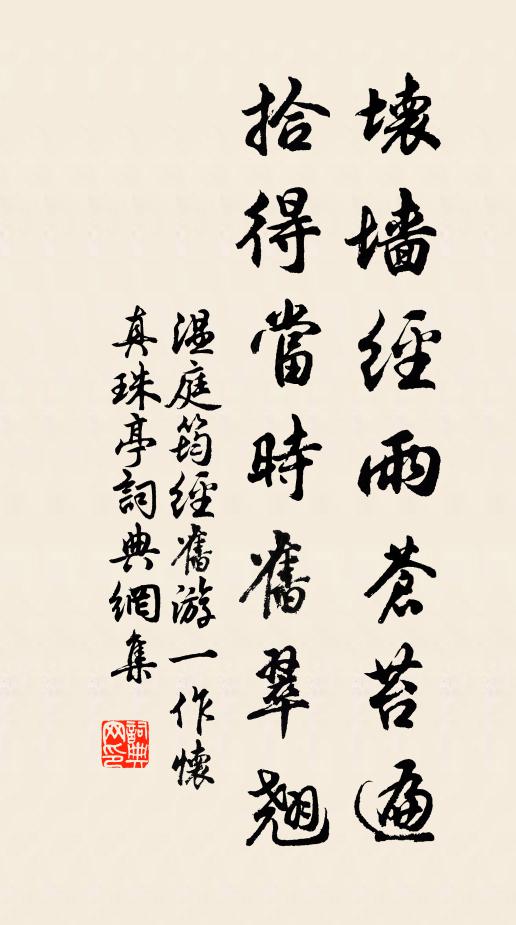 壞墙經雨蒼苔遍
拾得當時舊翠翹
温庭筠經舊游一作懷
真珠亭詞典網集
詞典網印